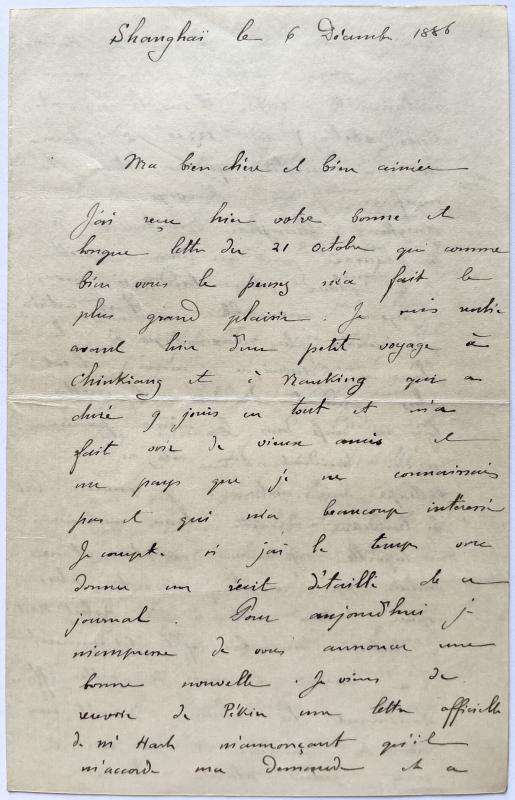 Shanghaï le 6 Décembre 1886
Ma bien chère et bien aimée
J'ai reçu hier votre bonne et
longue lettre du 21 octobre qui comme
bien vous le pensez m'a fait le
plus grand plaisir. Je suis rentré
avant hier d'un petit voyage à
Chinkiang et à Nanking qui a
duré 9 jours en tout et m'a
fait voir de vieux amis et
un pays que je ne connaissais
pas et qui m'a beaucoup intéressé
Je compte si j'ai le temps vous
donner un récit détaillé de ce
journal. Pour aujourd'hui je
m'empresse de vous annoncer une
bonne nouvelle. Je viens de
recevoir de Pékin une lettre officielle
de Mr Hart m'annonçant qu'il
m'accorde ma demande et a